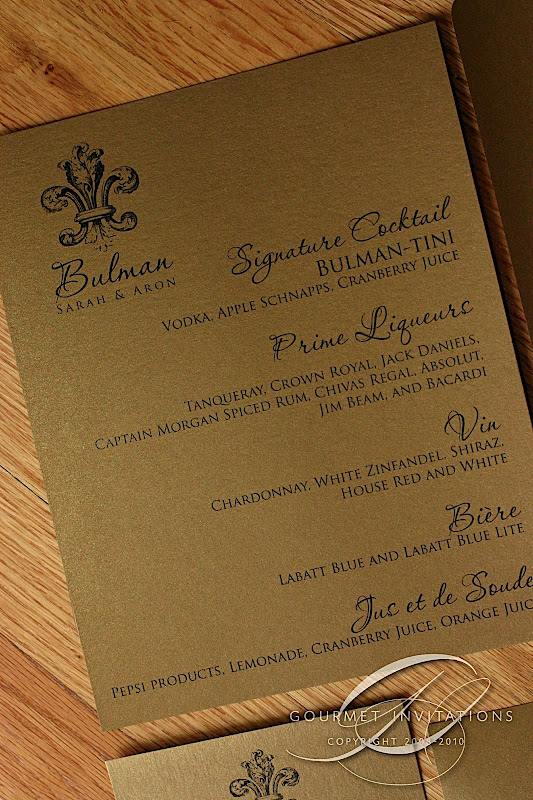 Bulman
Sarah & Aron
Signature Cocktail
Bulman-tini
Vodka, Apple Schnapps, Cranberry Juice
Prime Liqueurs
Tanqueray, Crown Royal, Jack Daniels,
Captain Morgan Spiced Rum, Chivas Regal, Absolut,
Jim Beam, and Bacardi
Vin
Chardonnay, White Zinfandel, Shiraz,
House Red and White
Bière
Labatt Blue and Labatt Blue Lite
Jus et de Soude
Pepsi products, Lemonade, Cranberry Juice, Orange Juic
GOURMET INVITATIONS
COPYRIGHT 2008-2010